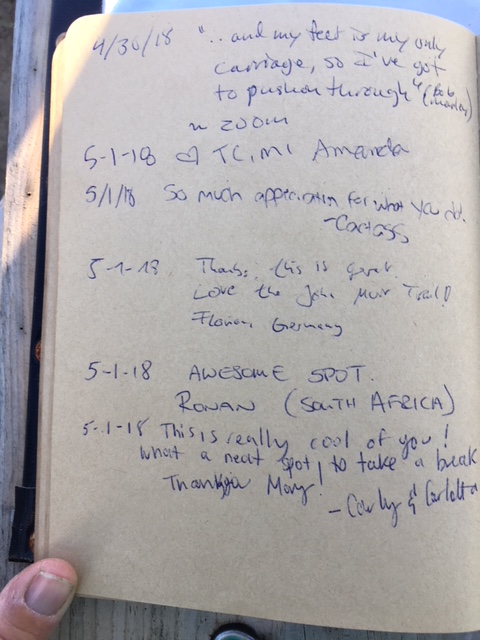 4/30/18 "..and my feet is my only
carriage, so I've got
to push on through" (Bob Marley)
~ zoom
5-1-18 ♡ TC, MI Amanda
5/1/18 So much appreciation for what you do.
5-1-18 Thanks, this is great.
Love the John Muir Trail!
Florian, Germany
5-1-18 AWESOME SPOT.
RONAN (SOUTH AFRICA)
5-1-18 This is really cool of you!
What a neat spot to take a break
Thank you Mary!
- Carly & Carlotta